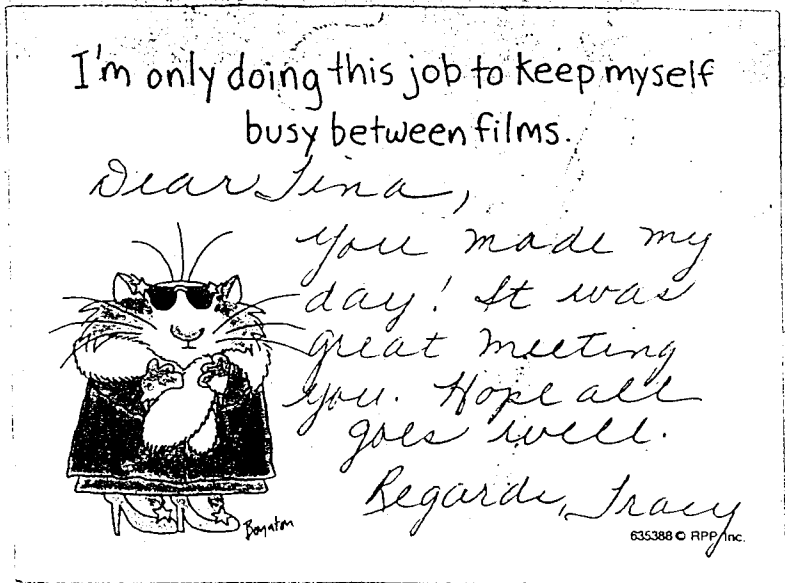 I'm only doing this job to keep myself
busy between films.
Dear Tina,
You made my
day! It was
great meeting
you. Hope all
goes well.
Regards, Tracy
Boynton
635388 © RPP, Inc.